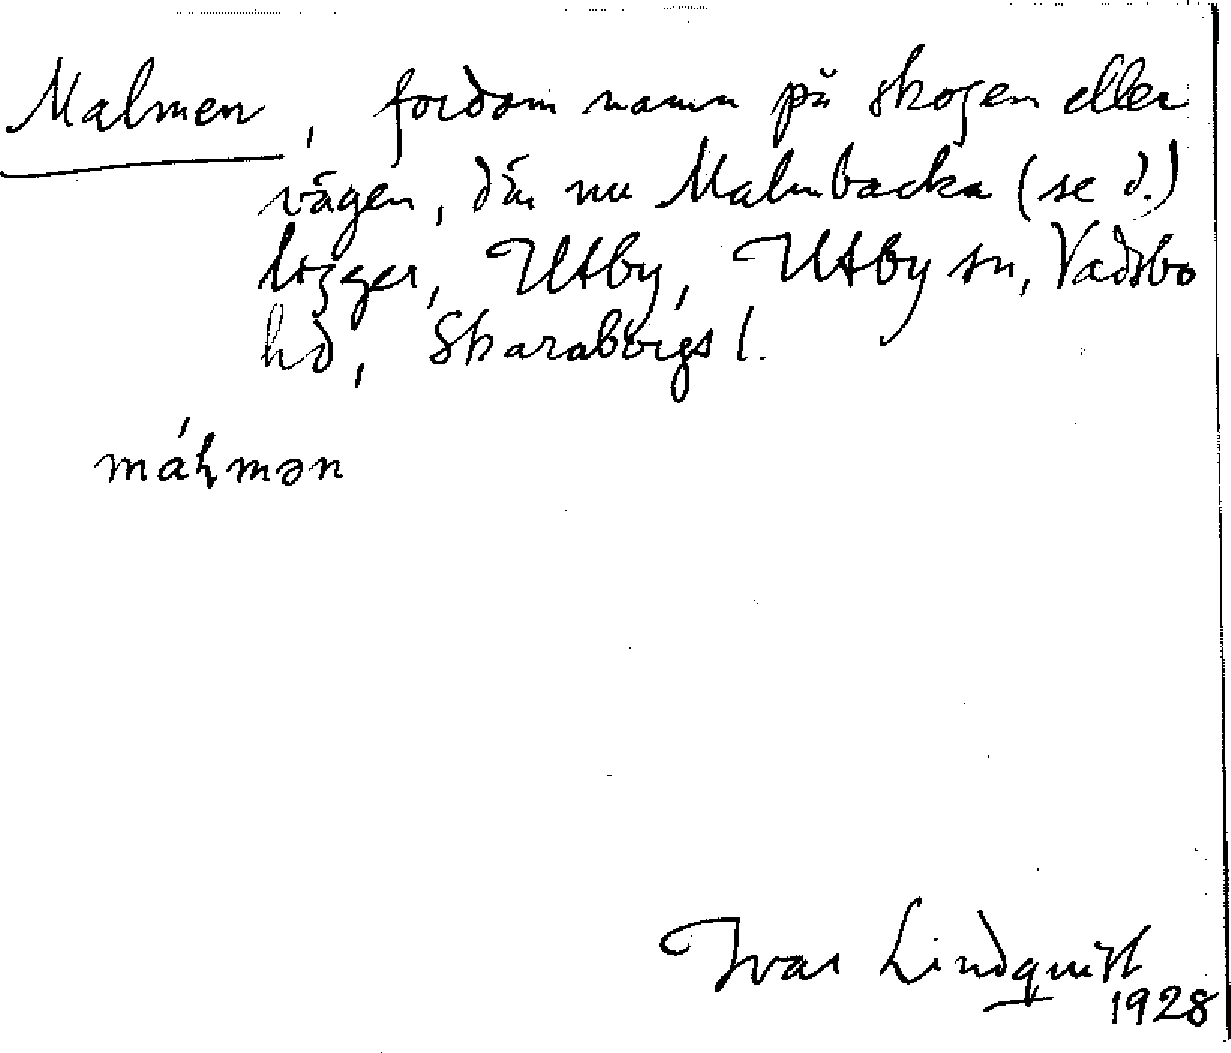 Malmen, fordom namn på skogen eller
vägen, där nu Malmbacka (se d.)
ligger, Utby, Utby sn, Vadsbo
hd, Skaraborgs l.
máɬmən
Ivar Lindquist
1928